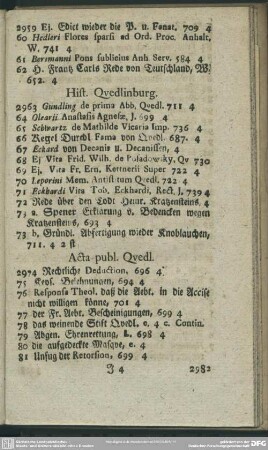 2959 Ej. Edict wieder die P. u. Fanat. 709 4
60 Hedleri Flores sparsi ad Ord. Proc. Anhalt.
W. 741 4
61 Bersmanni Pons sublicius Anh. Serv. 584 4
62 H. Frantz Carls Rede von Teutschland, W.
652. 4
Hist. Qvedlinburg.
2963 Gundling de prima Abb. Qvedl. 711 4
64 Olearii Anastasis Agnesæ, J. 699 4
65 Schwartz de Mathilde Vicaria Imp. 736 4
66 Kegel Durchl. Fama von Qvedl. 687. 4
67 Eckard von Decanis u. Decanissen, 4
68 Ej Vita Frid. Wilh. de Posadowsky, Qv. 730
69 Ej. Vita Fr. Ern. Kettnerii Super 722 4
70 Leporini Mem. Antist. tum Qvedl. 722 4
71 Eckhardi Vita Tob. Eckhardi, Rect. J. 739 4
72 Rede über den Tod Heinr. Kratzensteins 4
73 a. Spener Erklärung v. Bedencken wegen
Kratzensteins, 693 4
73 b. Gründl. Abfertigung wieder Knoblauchen,
711. 4 2 st
Acta publ. Qvedl.
2974 Rechtliche Deduction, 696 4
75 Keys. Belehnungen, 694 4
76 Responsa Theol. daß die Aebt. in die Accise
nicht willigen könne, 701 4
77 der Fr. Aebt. Bescheinigungen, 699 4
78 das weinende Stifft Qvedl. c. 4 c. Contin.
79 Abgen. Ehrenrettung, L. 698 4
80 die aufgedeckte Masqve, c. 4
81 Unfug der Retorsion, 699 4
J 4
2982